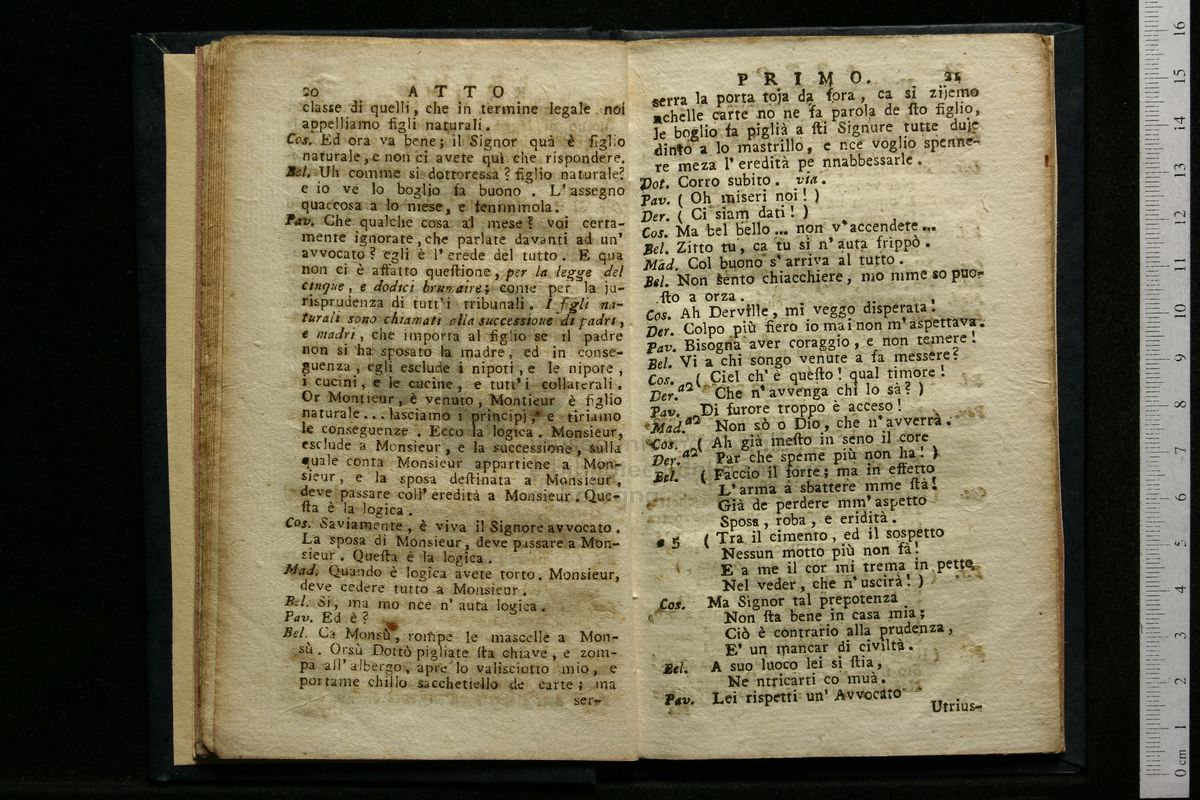 20 ATTO
classe di quelli, che in termine legale noi
appelliamo figli naturali.
Cos. Ed ora va bene; il Signor quà è figlio
naturale, e non ci avete quì che rispondere.
Bel. Uh comme si dottoressa? figlio naturale?
e io ve lo boglio fa buono. L'assegno
quaccosa a lo mese, e fenimmola.
Pav. Che qualche cosa al mese? voi certa-
mente ignorate, che parlate davanti ad un'
avvocato? egli è l'erede del tutto. E qua
non ci è affatto questione, per la legge del
cinque, e dodici brumaire; come per la ju-
risprudenza di tutt'i tribunali. I figli na-
turali sono chiamati alla successione di padri,
e madri, che importa al figlio se il padre
non si ha sposato la madre, ed in conse-
guenza, egli esclude i nipoti, e le nipote,
i cucini, e le cucine, e tutt'i collaterali.
Or Montieur, è venuto, Montieur è figlio
naturale... lasciamo i principj, e tiriamo
le conseguenze. Ecco la logica. Monsieur,
esclude a Monsieur, e la successione, sulla
quale conta Monsieur appartiene a Mon-
sieur, e la sposa destinata a Monsieur,
deve passare coll'eredità a Monsieur. Que-
sta è la logica.
Cos. Saviamente, è viva il Signore avvocato.
La sposa di Monsieur, deve passare a Mon-
sieur. Questa è la logica.
Mad. Quando è logica avete torto. Monsieur,
deve cedere tutto a Monsieur.
Bel. Si, ma mo nce n'auta logica.
Pav. Ed è?
Bel. Ca Monsù, rompe le mascelle a Mon-
sù. Orsù Dottò pigliate sta chiave, e zom-
pa all'albergo, apre lo valisciotto mio, e
portame chillo sacchetiello de carte; ma
ser-
PRIMO. 21
serra la porta toja da fora, ca si zijemo
achelle carte no ne fa parola de sto figlio,
le boglio fa piglià a sti Signure tutte duje
dinto a lo mastrillo, e nce voglio spenne-
re meza l'eredità pe nnabbessarle.
Dot. Corro subito. via.
Pav. ( Oh miseri noi! )
Der. ( Ci siam dati! )
Cos. Ma bel bello... non v'accendete...
Bel. Zitto tu, ca tu si n'auta frippò.
Mad. Col buono s'arriva al tutto.
Bel. Non sento chiacchiere, mo mme so puo-
sto a orza.
Cos. Ah Derville, mi veggo disperata!
Der. Colpo più fiero io mai non m'aspettava.
Pav. Bisogna aver coraggio, e non temere!
Bel. Vi a chi songo venute a fa messere?
Cos. a2 ( Ciel ch'è questo! qual timore!
Der. Che n'avvenga chi lo sà? )
Pav. a2 Di furore troppo è acceso!
Mad. Non sò o Dio, che n'avverrà.
Cos. a2 ( Ah già mesto in seno il core
Der. Par che speme più non ha! )
Bel. ( Faccio il forte; ma in effetto
L'arma a sbattere mme stà!
Già de perdere mm'aspetto
Sposa, roba, e eridità.
a 5 ( Tra il cimento, ed il sospetto
Nessun motto più non fà!
E a me il cor mi trema in petto,
Nel veder, che n'uscirà! )
Cos. Ma Signor tal prepotenza
Non sta bene in casa mia;
Ciò è contrario alla prudenza,
E' un mancar di civiltà.
Bel. A suo luoco lei si stia,
Ne ntricarti co muà.
Pav. Lei rispetti un' Avvocato
Utrius-
16
15
14
13
12
11
10
9
8
7
6
5
4
3
2
1
0 cm